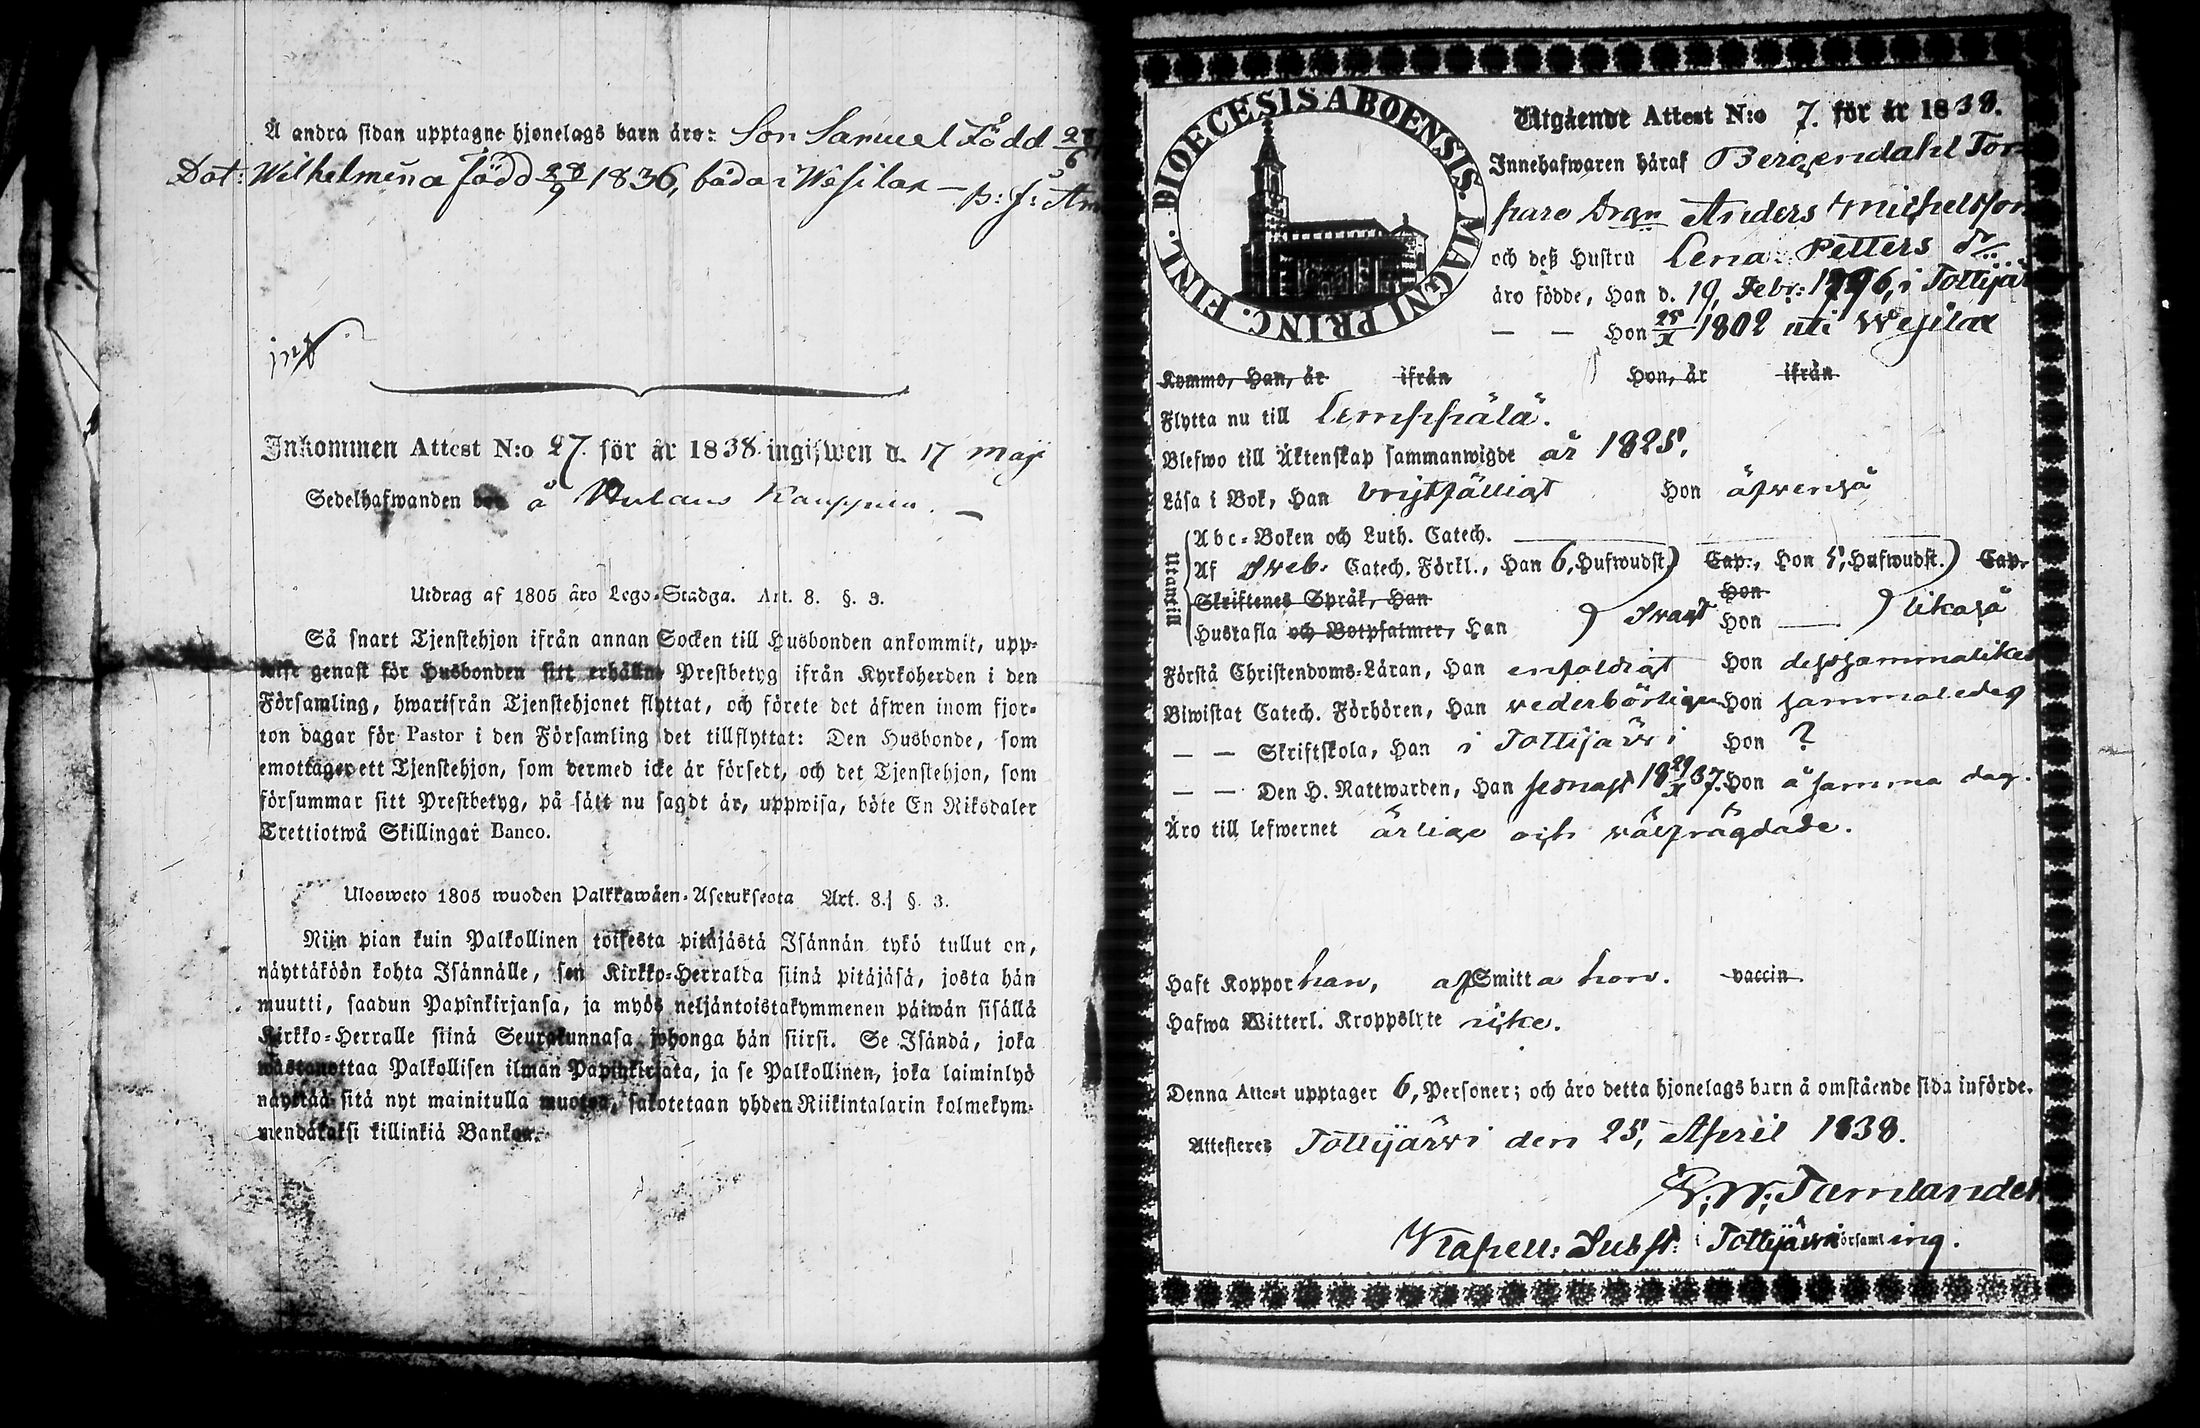 Å andra sidan upptagne hjonelags barn äro: Son Samuel Född 28/6
Dot: Wilhelmina född 28/9 1836, båda i Wesilax — p: f:
Inkommen Attest N:o 27. för år 1838. ingifwen d. 17 Maji
Sedelhafwanden å Kauppila. —
Utdrag af 1805 års Lego-Stadga. Art. 8. §. 3.
Så snart Tjenstehjon ifrån annan Socken till Husbonden ankommit, upp-
wise genast för Husbonden sitt erhållne Prestbetyg ifrån Kyrkoherden i den
Församling, hwarifrån Tjenstehjonet flyttat, och förete det äfwen inom fjor-
ton dagar för Pastor i den Församling det tillflyttat: Den Husbonde, som
emottager ett Tjenstehjon, som dermed icke är försedt, och det Tjenstehjon, som
försummar sitt Prestbetyg, på sätt nu sagdt är, uppwisa, böte En Riksdaler
Trettiotwå Skillingar Banco.
Ulosweto 1805 wuoden Palkkawäen-Asetuksesta Art. 8. §. 3.
Niin pian kuin Palkollinen toisesta pitäjästä Isännän tykö tullut on,
näyttäköön kohta Isännälle, sen Kirkko-Herralda siinä pitäjäsä, josta hän
muutti, saadun Papinkirjansa, ja myös neljäntoistakymmenen päiwän sisällä
Kirkko-Herralle siinä Seurakunnasa johonga hän siirsi. Se Isändä, joka
wastanottaa Palkollisen ilman Papinkirjata, ja se Palkollinen, joka laiminlyö
näyttää sitä nyt mainitulla muotoa, sakotetaan yhden Riikintalarin kolmekym-
mendäkaksi killinkiä Bankos.
DIOECESIS ABOENSIS. MAGNI PRINC. FINL.
Utgående Attest N:o 7. för år 1838.
Innehafwaren häraf Bergendahl Tor
pare Drgn Anders Michelsson
och deß Hustru Lena Petters dr.
äro födde, Han d. 19, Febr: 1796, i Tottijär
— — Hon 25/X 1802 uti Wesilax
Kommo, Han, år ifrån Hon, år ifrån
Flytta nu till Lemppälä.
Blefwo till Äktenskap sammanwigde år 1825.
Läsa i Bok, Han bristfälligt Hon äfvenså
Utantill
Abc-Boken och Luth. Catech.
Af Sveb. Catech. Förkl., Han 6, Hufwudst.) Cap., Hon 5, Hufwudst.) Cap.
Skriftenes Språk, Han Hon
Hustafla och Botpsalmer, Han ) Svagt Hon — ) likaså
Förstå Christendoms-Läran, Han enfaldigt Hon dessammalikes
Biwistat Catech. Förhören, Han vederbörligen Hon sammaledes
— — Skriftskola, Han i Tottijärvi Hon ?
— — Den H. Nattwarden, Han senast 18 29/X 37. Hon å samma dag.
Äro till lefwernet ärlige och välfrägdade.
Haft Koppor han, af Smitta hon. vaccin
Hafwa Witterl. Kroppslyte icke.
Denna Attest upptager 6, Personer; och äro detta hjonelags barn å omstående sida införde.
Attesteres Tottijärvi den 25, April 1838.
Tamlander
Kapell: Subst: i Tottijärvi församling.